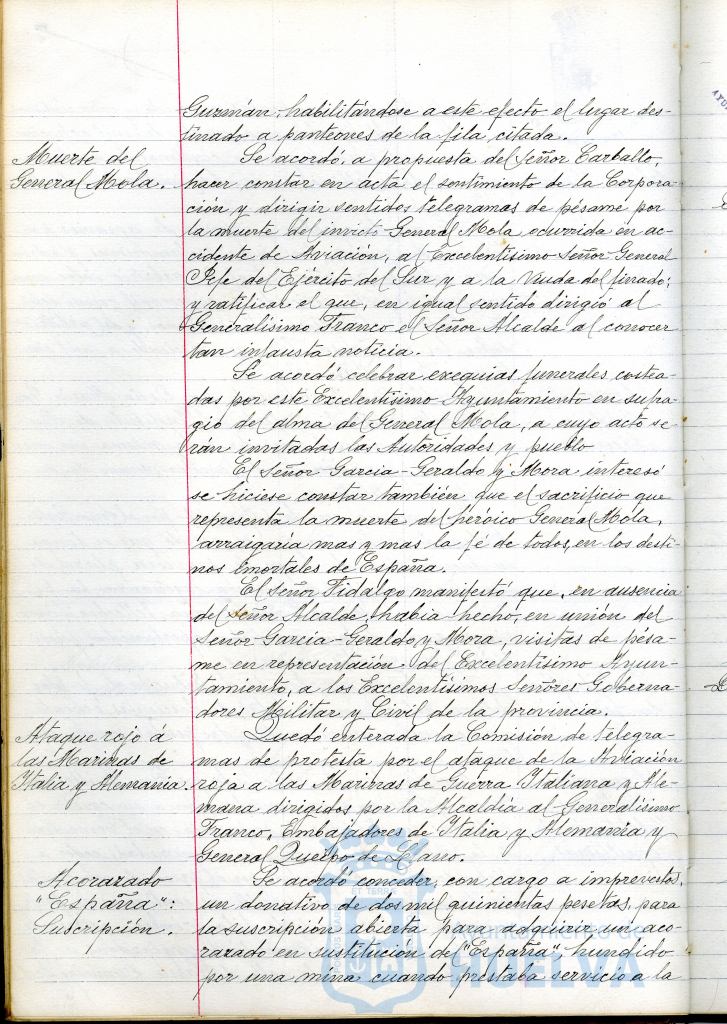 Guzmán, habilitándose a este efecto el lugar des-
tinado a panteones de la fila citada.
Muerte del
General Mola.
Se acordó, a propuesta del Señor Carballo,
hacer constar en acta el sentimiento de la Corpora-
ción y dirigir sentidos telegramas de pésame por
la muerte del invicto General Mola, ocurrida en ac-
cidente de Aviación, al Excelentísimo Señor General
Jefe del Ejército del Sur y a la Viuda del finado;
y ratificar el que, en igual sentido dirigió al
Generalísimo Franco el Señor Alcalde al conocer
tan infausta noticia.
Se acordó celebrar exequias funerales costea-
das por este Excelentísimo Ayuntamiento en sufra-
gio del alma del General Mola, a cuyo acto se-
rán invitadas las Autoridades y pueblo
El Señor Garcia-Geraldo y Mora interesó
se hiciese constar también que el sacrificio que
representa la muerte del heróico General Mola,
arraigaría mas y mas la fé de todos, en los desti-
nos inmortales de España.
El Señor Fidalgo manifestó que, en ausencia
del Señor Alcalde, habia hecho, en unión del
Señor Garcia-Geraldo y Mora, visitas de pésa-
me en representación del Excelentísimo Ayun-
tamiento, a los Excelentísimos Señores Goberna-
dores Militar y Civil de la provincia.
Ataque rojo á
las Marinas de
Italia y Alemania.
Quedó enterada la Comisión de telegra-
mas de protesta por el ataque de la Aviación
roja a las Marinas de Guerra Italiana y Ale-
mana dirigidos por la Alcaldía al Generalísimo
Franco, Embajadores de Italia y Alemania y
General Queipo de Llano.
Acorazado
"España":
Suscripción.
Se acordó conceder, con cargo a imprevistos,
un donativo de dos mil quinientas pesetas, para
la suscripción abierta para adquirir un aco-
razado en sustitución del "España", hundido
por una mina cuando prestaba servicio a la